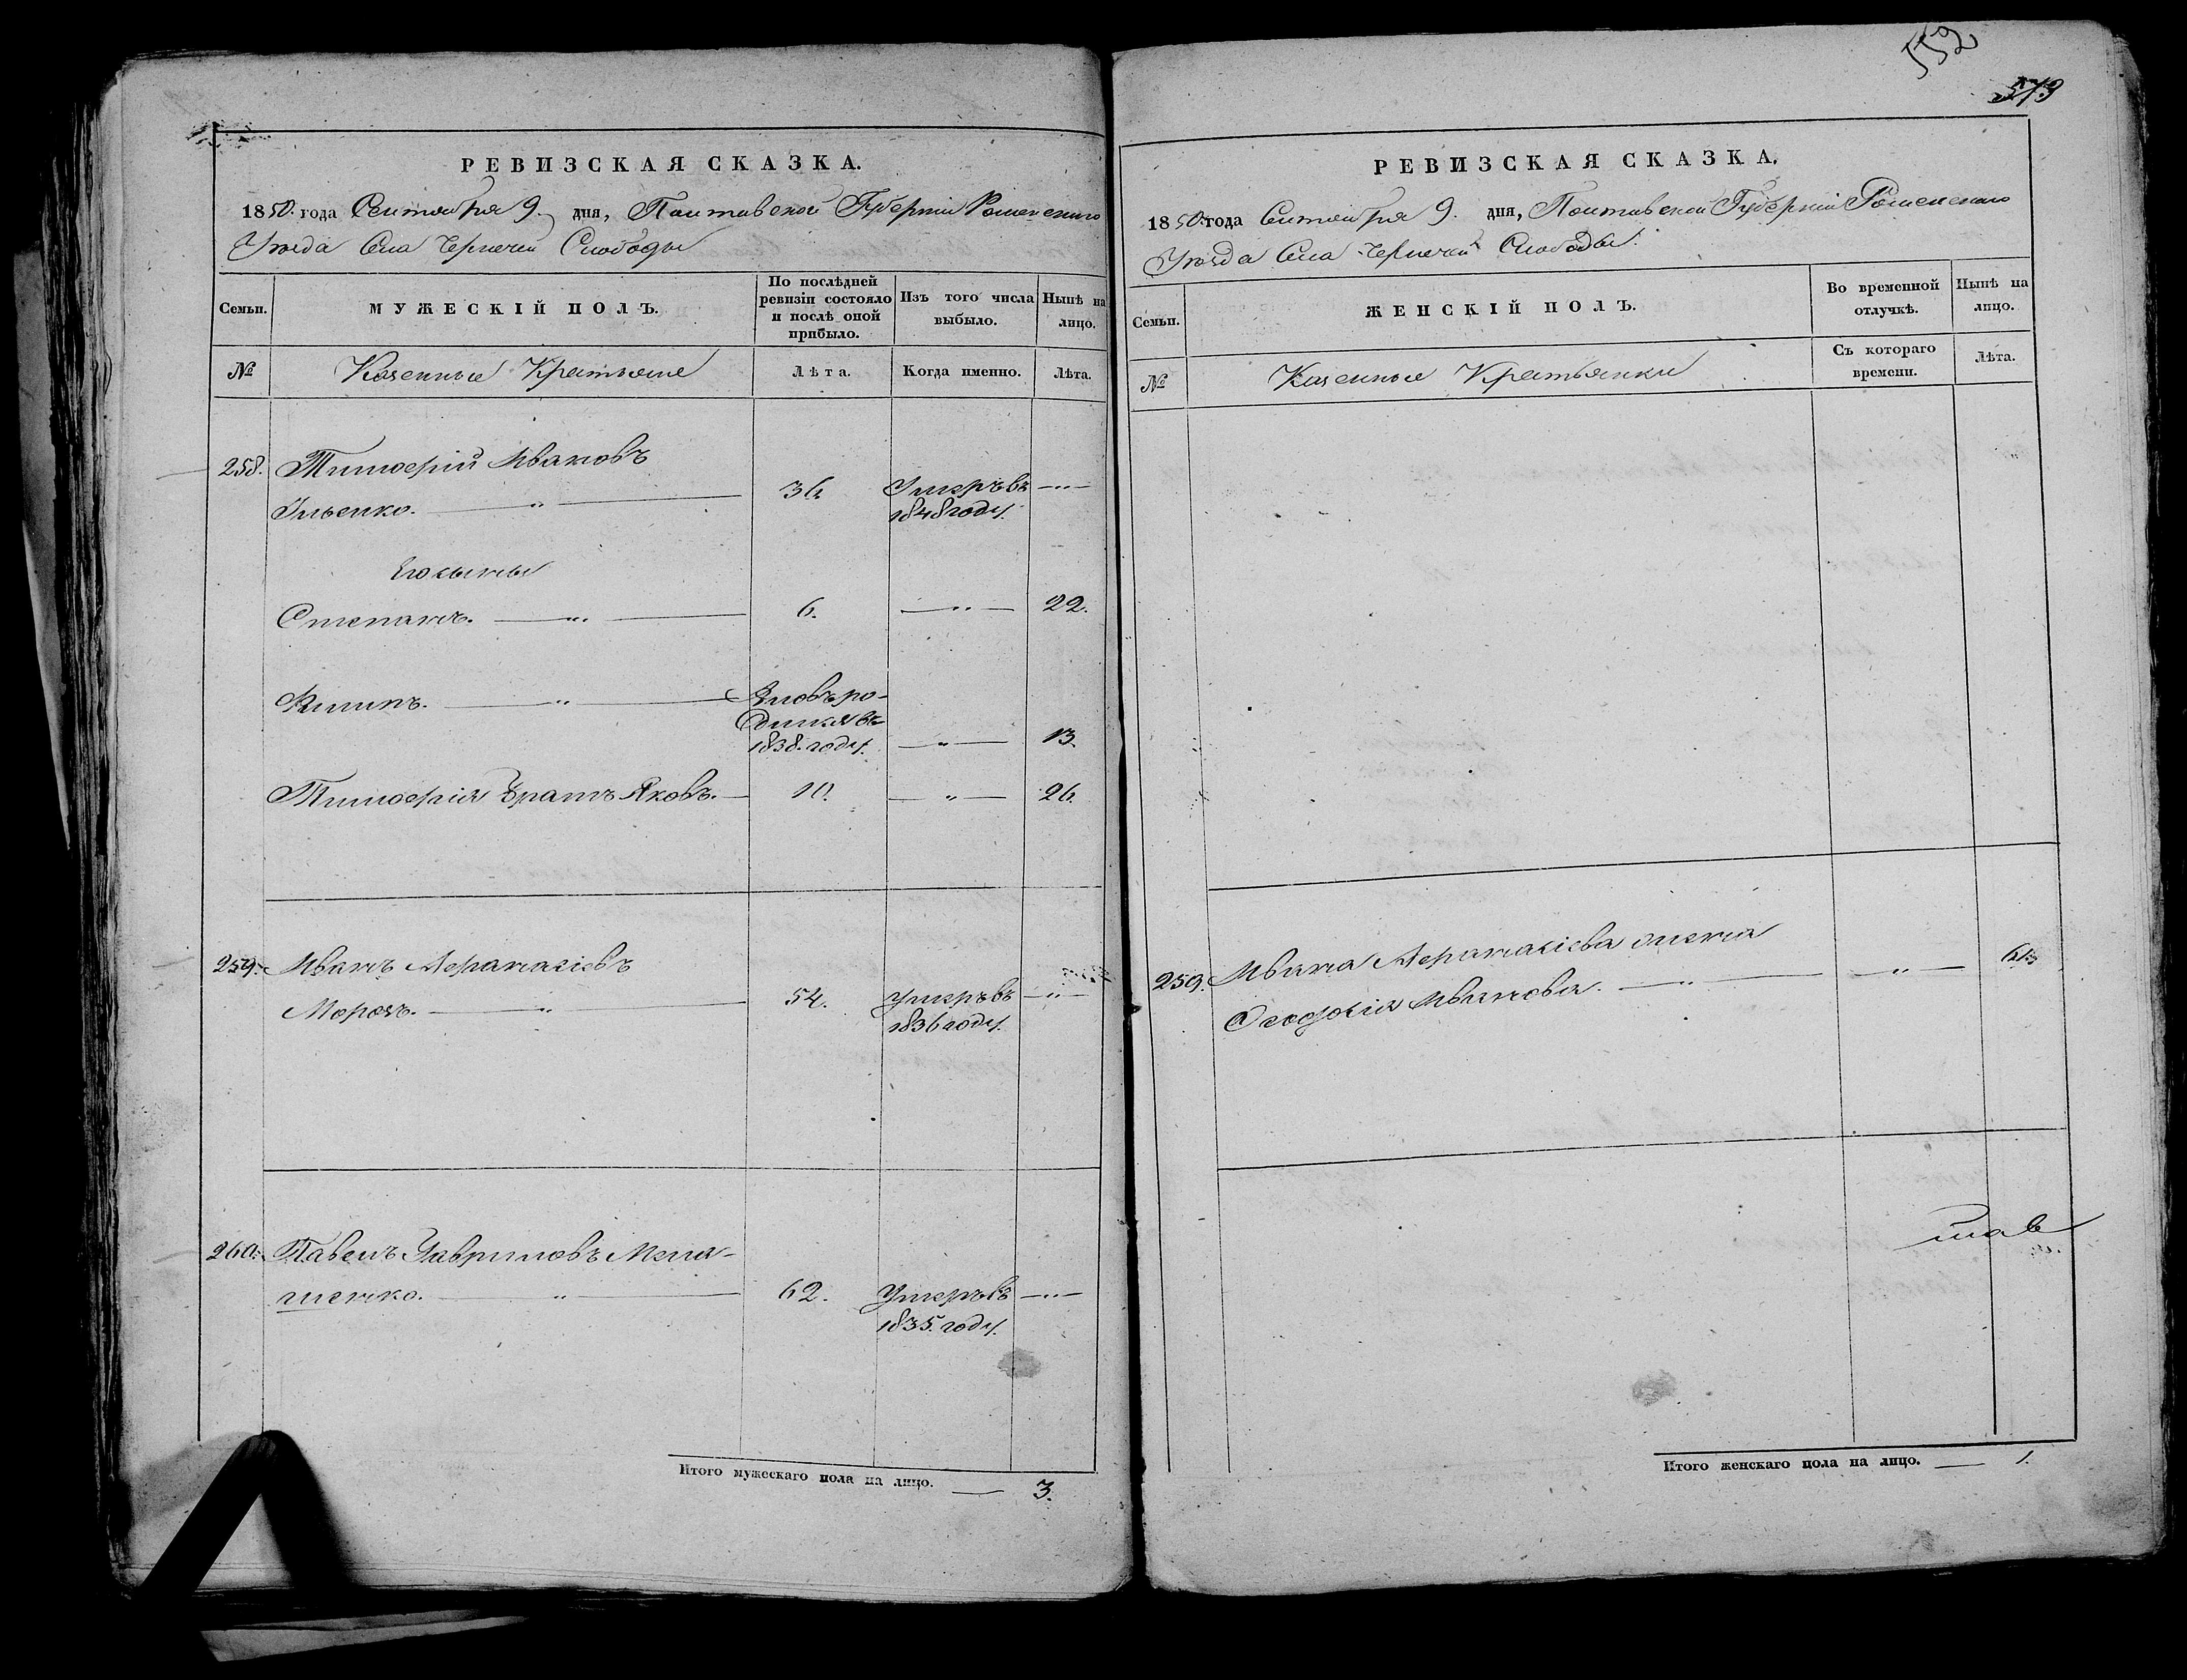 552
573
РЕВИЗСКАЯ СКАЗКА.
1850. года Сентября 9. дня, Полтавской Губерніи Роменскаго
Уезда Села Чернечей Слободы
Семьи.
МУЖЕСКІЙ ПОЛЪ.
По послѣдней ревизіи состояло и послѣ оной прибыло.
Изъ того числа выбыло.
Нынѣ на лицо.
№
Казенные Крестьяне
Лѣта.
Когда именно.
Лѣта.
258. Тимофей Ивановъ
Ильенко. — " — 36. Умеръ въ 1848 году. — " —
Его сыны
Степанъ. — " — 6. — " — 22.
Филипъ. — " — Вновь родился въ 1838. году. — " — 13.
Тимофея братъ Яковъ. — 10. — " — 26.
259. Иванъ Афанасіевъ
Морозъ. — " — 54. Умеръ въ 1836 году. — " —
260. Павелъ Гавриловъ
62. Умеръ въ 1835. году. — " —
Итого мужескаго пола на лицо. — 3.
РЕВИЗСКАЯ СКАЗКА.
1850. года Сентября 9. дня, Полтавской Губерніи Роменскаго
Уезда Села Чернечей Слободы.
Семьи.
ЖЕНСКІЙ ПОЛЪ.
Во временной отлучкѣ.
Нынѣ на лицо.
№
Казенные Крестьянки
Съ котораго времени.
Лѣта.
259. Ивана Афанасіева жена
Феодосія Иванова. — " — — " —
Итого женскаго пола на лицо. — 1.